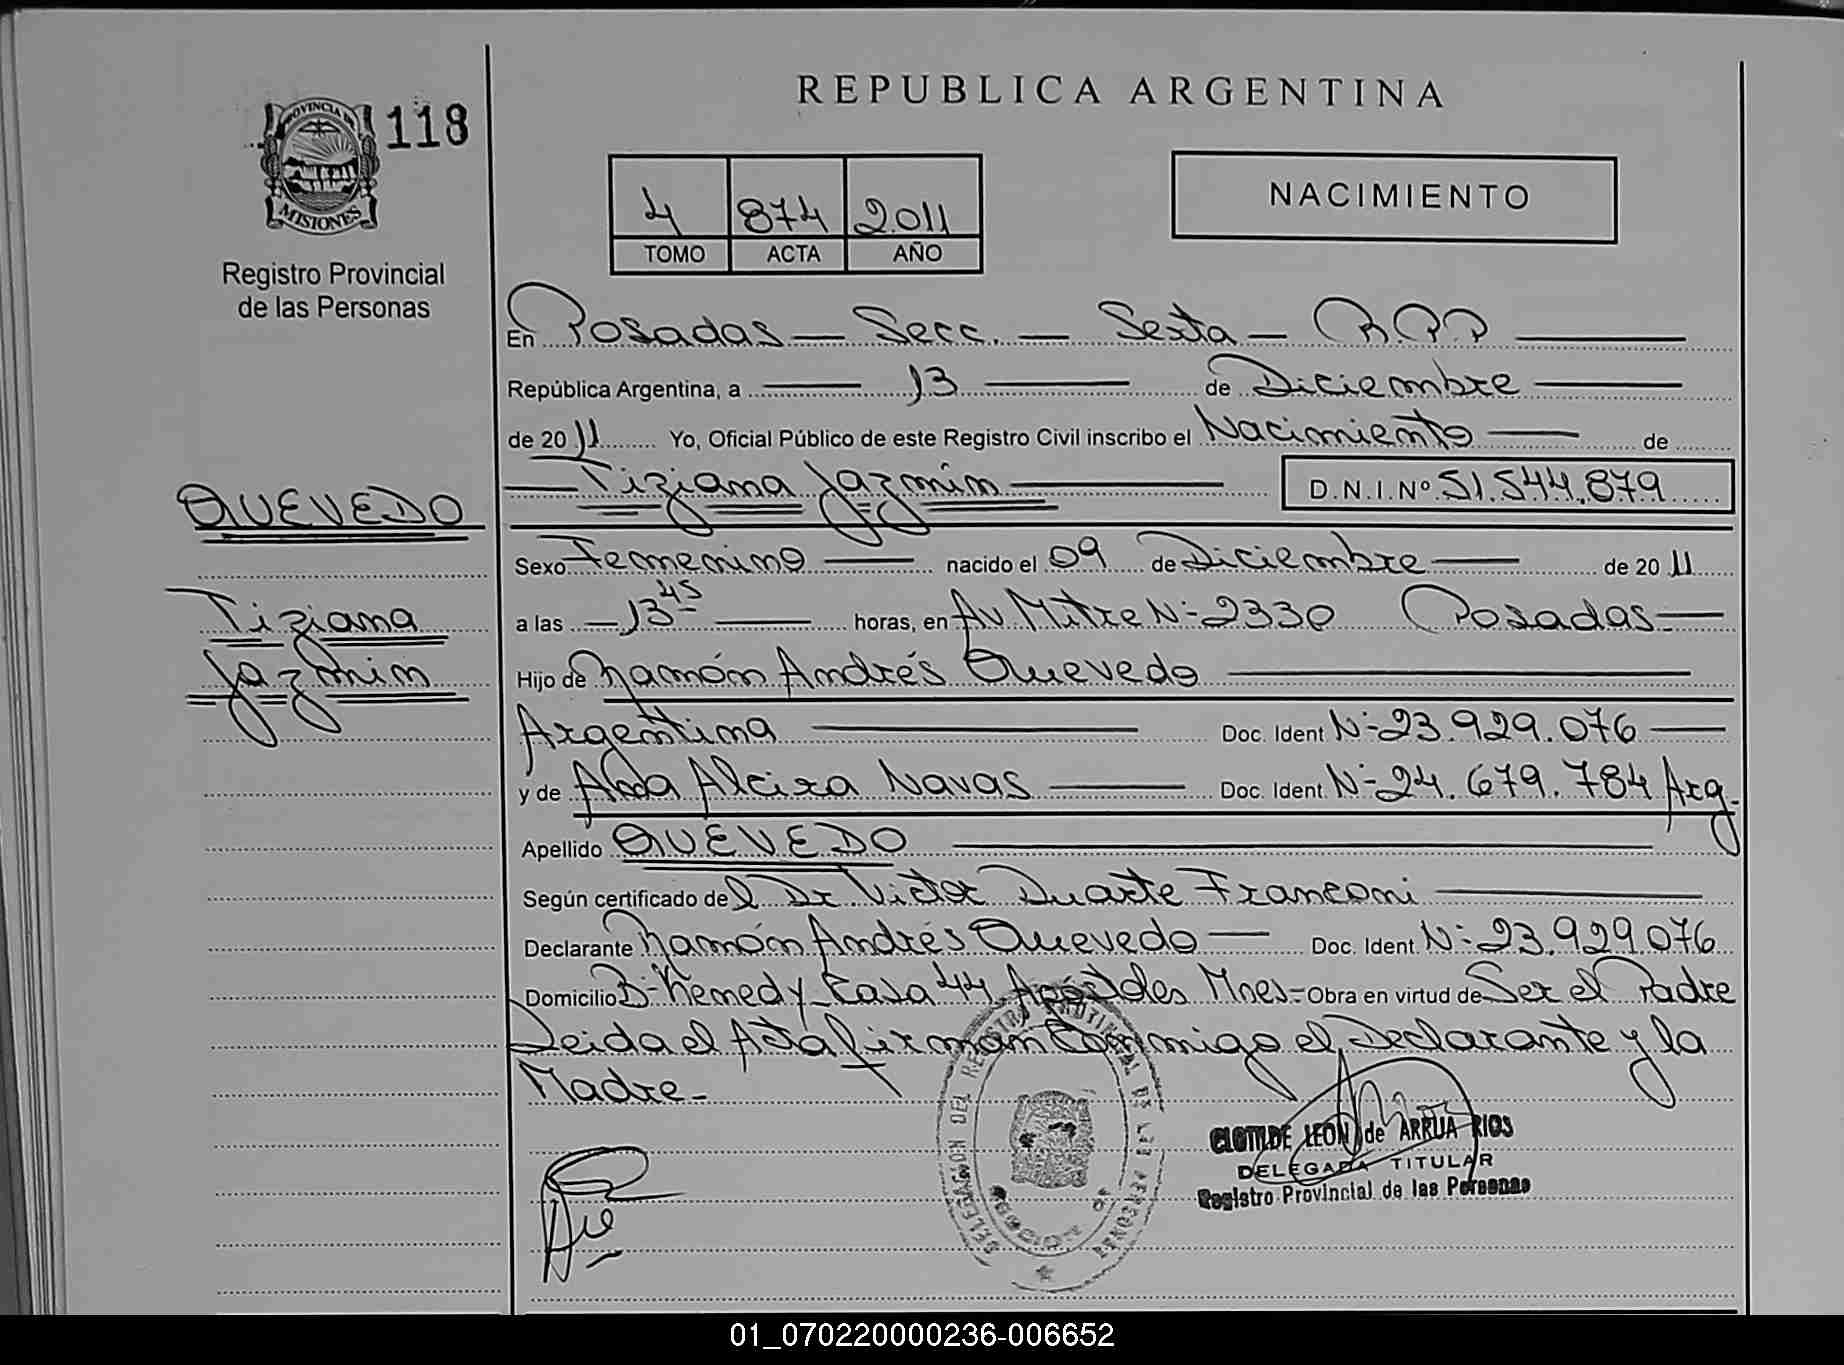 PROVINCIA DE
MISIONES
118
Registro Provincial
de las Personas
REPUBLICA ARGENTINA
4 874 2.011
TOMO ACTA AÑO
NACIMIENTO
En Posadas — Secc. — Sexta — R.P.P
República Argentina, a 13 de Diciembre
de 2011 Yo, Oficial Público de este Registro Civil inscribo el Nacimiento de
Tiziana Jazmin D.N.I. Nº 51.544.879
QUEVEDO
Tiziana
Jazmin
Sexo Femenino nacido el 09 de Diciembre de 2011
a las 13 45 horas, en Av. Mitre N- 2330 Posadas
Hijo de Ramón Andrés Quevedo
Argentina Doc. Ident N- 23.929.076
y de Alcira Navas Doc. Ident N- 24.679.784 Arg.
Apellido QUEVEDO
Según certificado del Dr Victor Duarte Franconi
Declarante Ramón Andrés Quevedo Doc. Ident. N- 23.929.076
Domicilio B- Kemedy Casa 44 Apóstoles Mnes- Obra en virtud de Ser el Padre
Leida el Acta firman Conmigo el Declarante y la
Madre-
DELEGACION DEL REGISTRO PROVINCIAL DE LAS PERSONAS
CLOTILDE LEON de ARRUA RIOS
DELEGADA TITULAR
Registro Provincial de las Personas
01_070220000236-006652